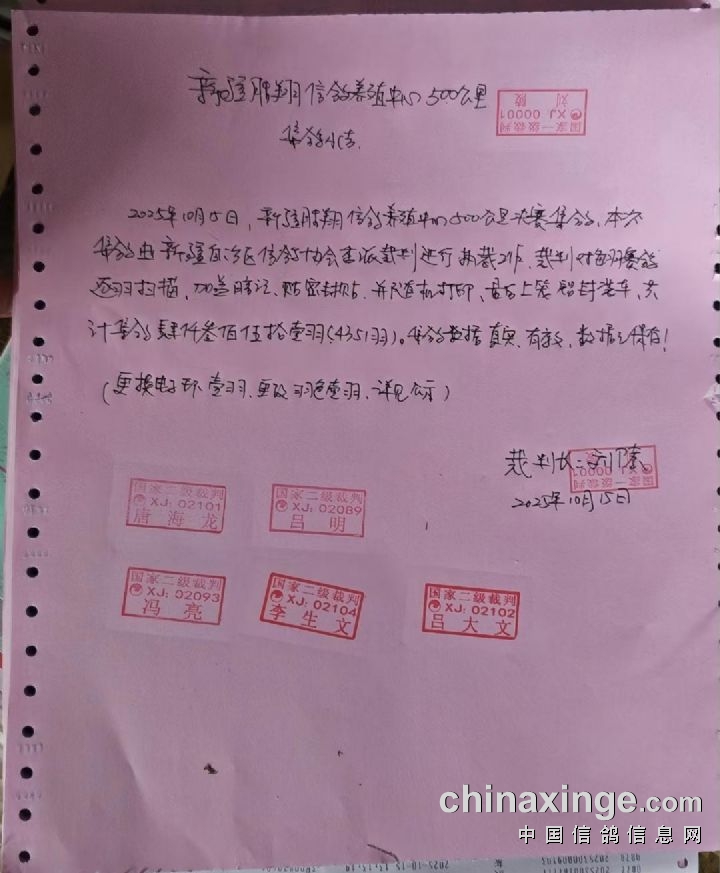 新疆胜翔信鸽养殖中心500公里
国家一级裁判
XJ: 00001
刘陵
集鸽小结
2025年10月15日，新疆胜翔信鸽养殖中心500公里决赛集鸽，本次
集鸽由新疆自治区信鸽协会委派裁判进行执裁工作，裁判对每羽赛鸽
逐羽扫描，加盖暗记，贴密封贴，并随机打印，最后上笼铅封装车，共
计集鸽肆仟叁佰伍拾壹羽(4351羽)。集鸽数据真实、有效、数据已保存！
(更换电子环壹羽、更改羽色壹羽、详见公示)
裁判长：刘陵
国家一级裁判
XJ: 00001
2025年10月15日
国家二级裁判
XJ: 02101
唐海龙
国家二级裁判
XJ: 02089
吕明
国家二级裁判
XJ: 02093
冯亮
国家二级裁判
XJ: 02104
李生文
国家二级裁判
XJ: 02102
吕大文
chinaxinge.com
中国信鸽信息网